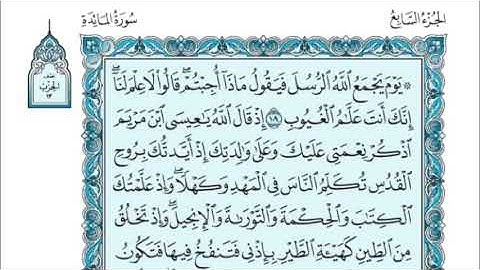 الجزء السابع
سورة المائدة
نصف
الحزب
١٣
۞ يَوْمَ يَجْمَعُ اللَّهُ الرُّسُلَ فَيَقُولُ مَاذَا أُجِبْتُمْ ۖ قَالُوا لَا عِلْمَ لَنَا ۖ
إِنَّكَ أَنتَ عَلَّامُ الْغُيُوبِ ١٠٩ إِذْ قَالَ اللَّهُ يَا عِيسَى ابْنَ مَرْيَمَ
اذْكُرْ نِعْمَتِي عَلَيْكَ وَعَلَىٰ وَالِدَتِكَ إِذْ أَيَّدتُّكَ بِرُوحِ
الْقُدُسِ تُكَلِّمُ النَّاسَ فِي الْمَهْدِ وَكَهْلًا ۖ وَإِذْ عَلَّمْتُكَ
الْكِتَابَ وَالْحِكْمَةَ وَالتَّوْرَاةَ وَالْإِنجِيلَ ۖ وَإِذْ تَخْلُقُ
مِنَ الطِّينِ كَهَيْئَةِ الطَّيْرِ بِإِذْنِي فَتَنفُخُ فِيهَا فَتَكُونُ